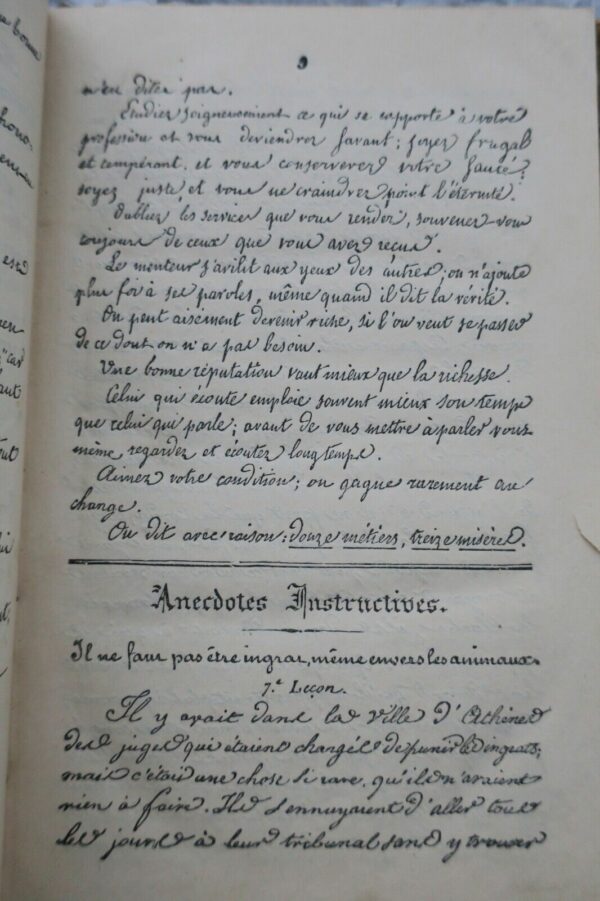 9
n'en dites pas.
Etudiez soigneusement ce qui se rapporte à votre
profession et vous deviendrez savant; soyez frugal
et tempérant, et vous conserverez votre santé;
soyez juste, et vous ne craindrez point l'éternité.
Oubliez les services que vous rendez, souvenez-vous
toujours de ceux que vous avez reçus.
Le menteur s'avilit aux yeux des autres; on n'ajoute
plus foi à ses paroles, même quand il dit la vérité.
On peut aisément devenir riche, si l'on veut se passer
de ce dont on n'a pas besoin.
Une bonne réputation vaut mieux que la richesse.
Celui qui écoute emploie souvent mieux son temps
que celui qui parle; avant de vous mettre à parler vous-
même regardez et écoutez longtemps.
Aimez votre condition; on gagne rarement au
change.
On dit avec raison: douze métiers, treize misères.
Anecdotes Instructives.
Il ne faut pas être ingrat, même envers les animaux.
7.e Leçon.
Il y avait dans la ville d'Athènes
des juges qui étaient chargés de punir les ingrats;
mais c'était une chose si rare, qu'ils n'avaient
rien à faire. Ils s'ennuyaient d'aller tous
les jours à leur tribunal sans y trouver